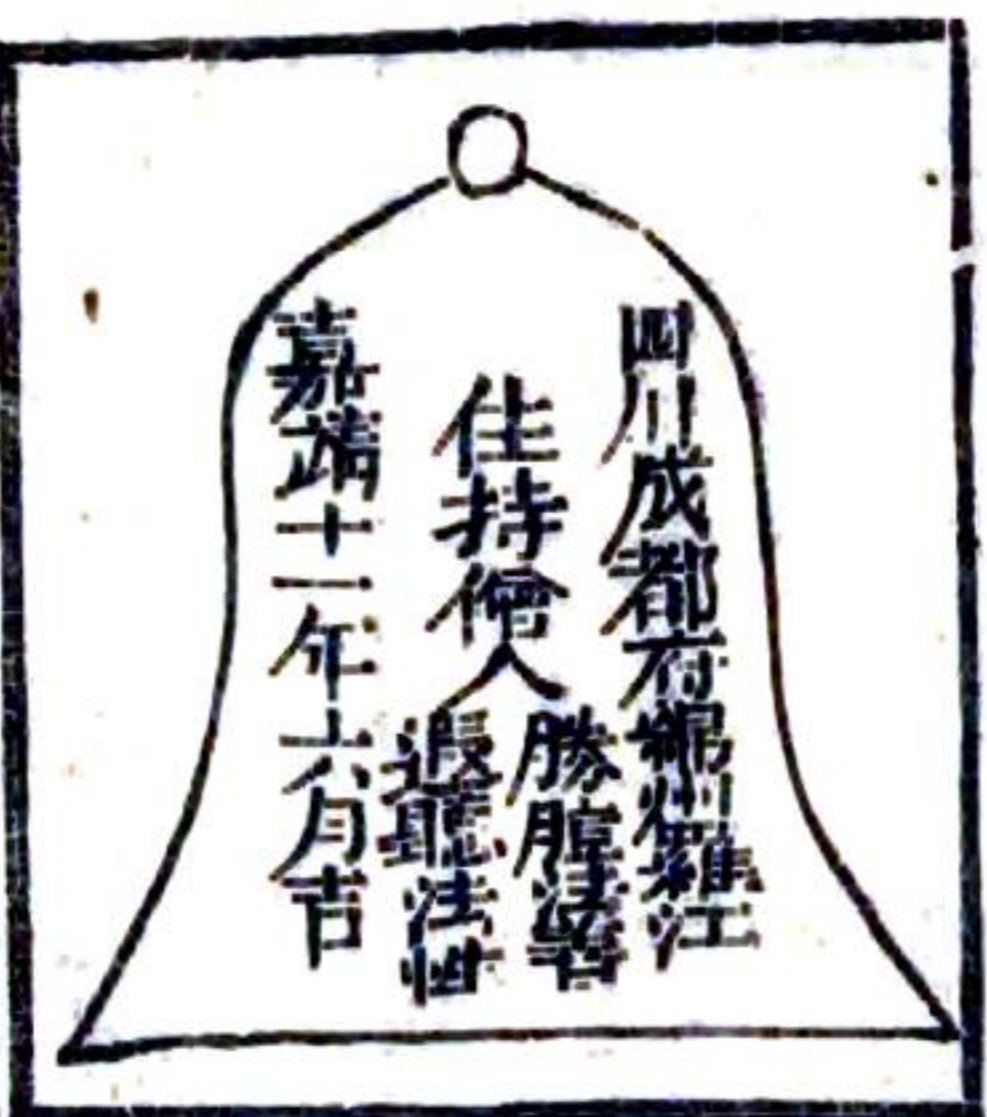 四川成都府綿州羅江
住持僧人
勝 法
遐聰法性
嘉靖十一年六月吉